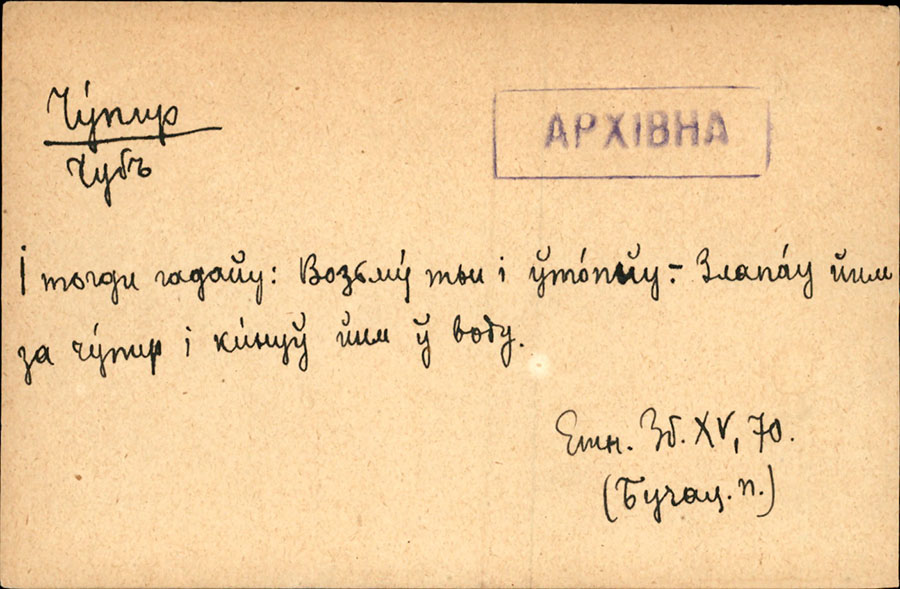 Чу́пир
АРХІВНА
Чубъ
І тогди гадайу: Возьму́ тьи і ўто́пйу – Злапа́ў йим
за чу́пир і ки́нуў йим ў воду.
Етн. Зб. XV, 70.
(Бучац. п.)